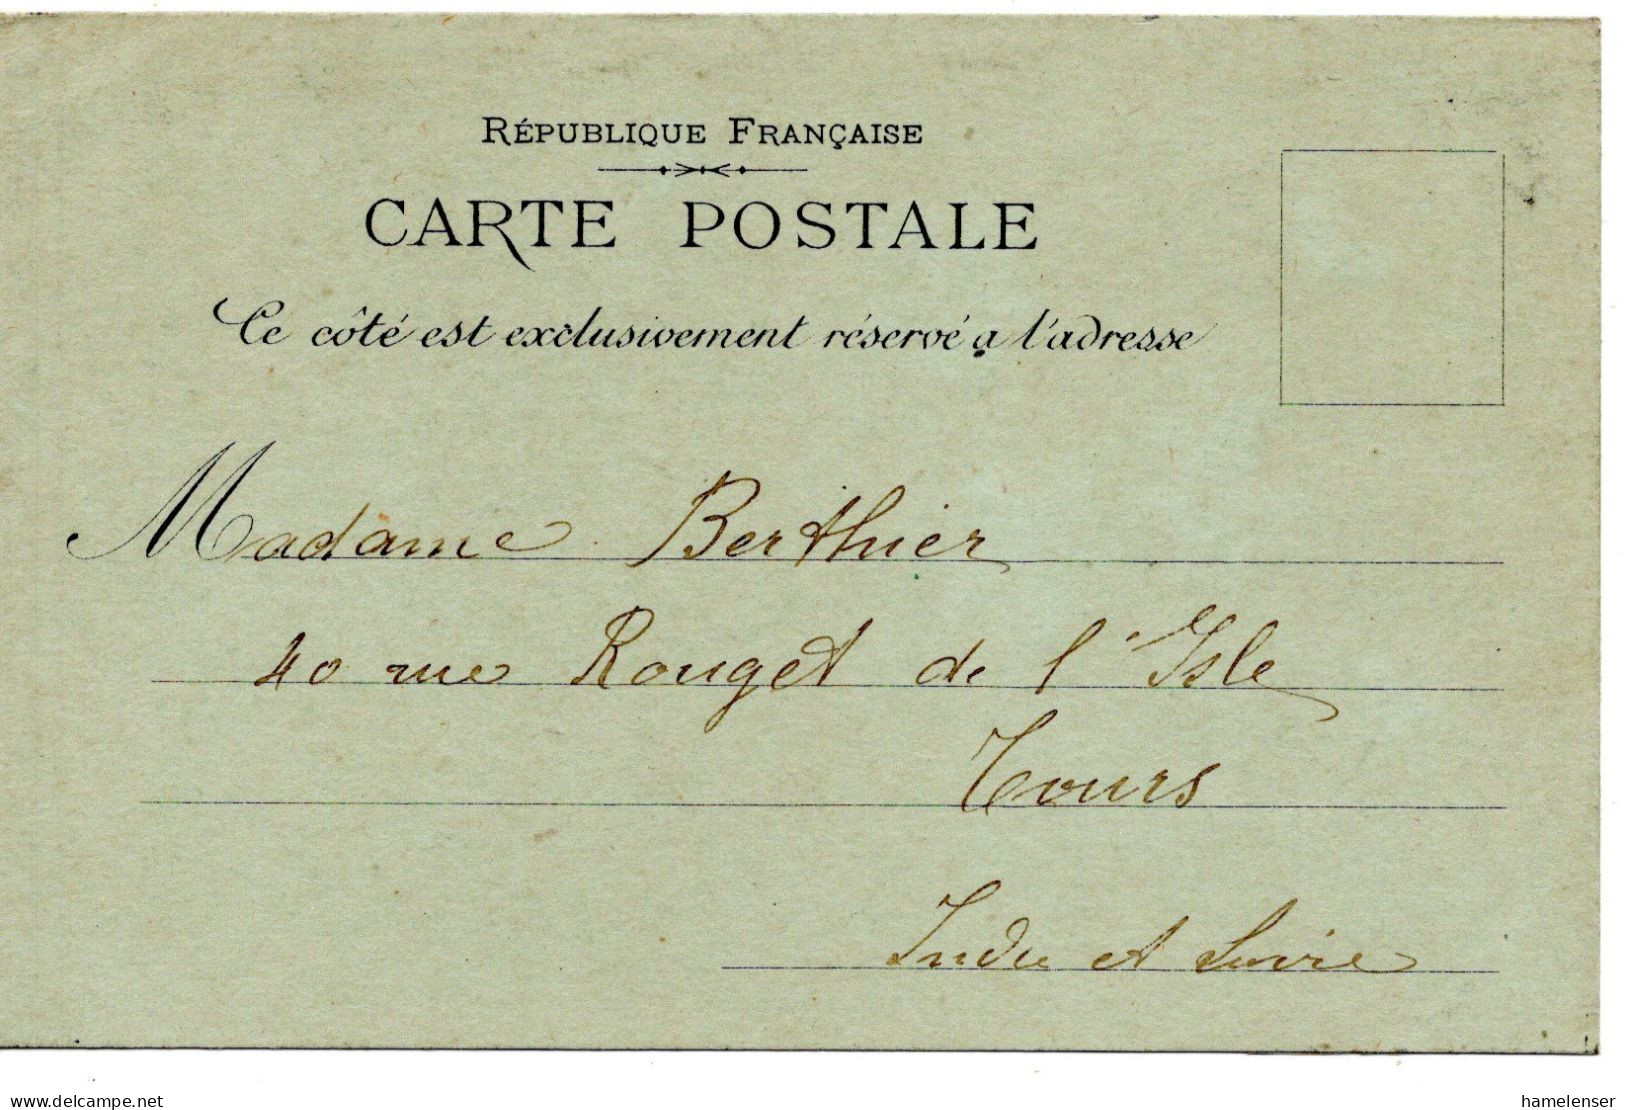 RÉPUBLIQUE FRANÇAISE
CARTE POSTALE
Ce côté est exclusivement réservé a l'adresse
Madame Berthier
40 rue Rouget de l'Isle
Tours
Indre et Loire
www.delcampe.net
hamelenser